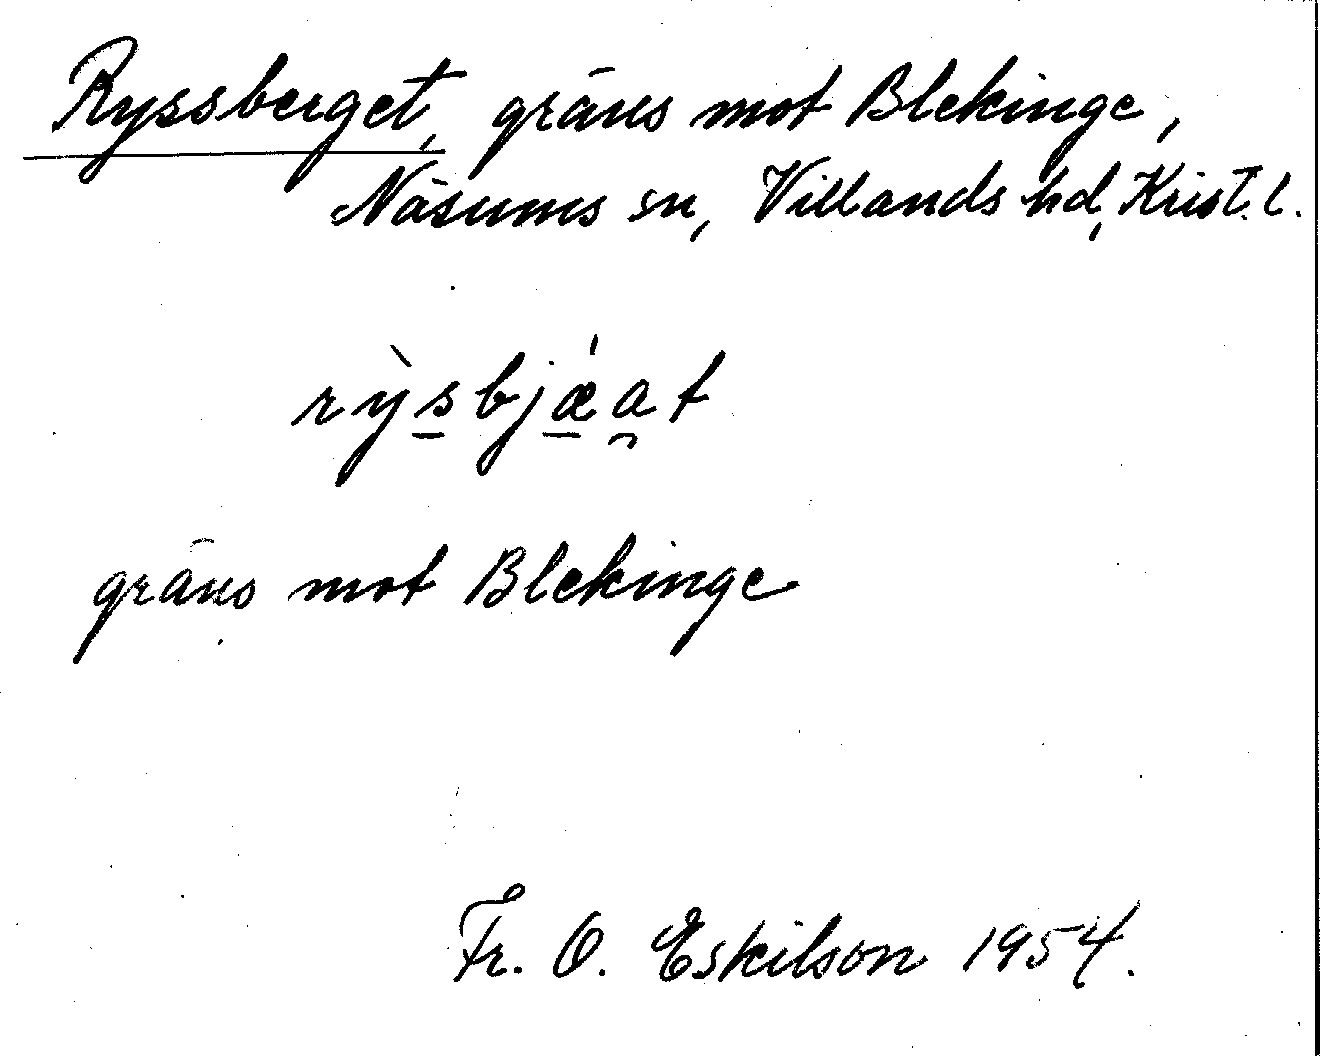 Ryssberget, gräns mot Blekinge,
Näsums sn, Villands hd, Krist. l.
rỳs̲bjǽ̲a̯t
gräns mot Blekinge
Fr. O. Eskilson 1954.